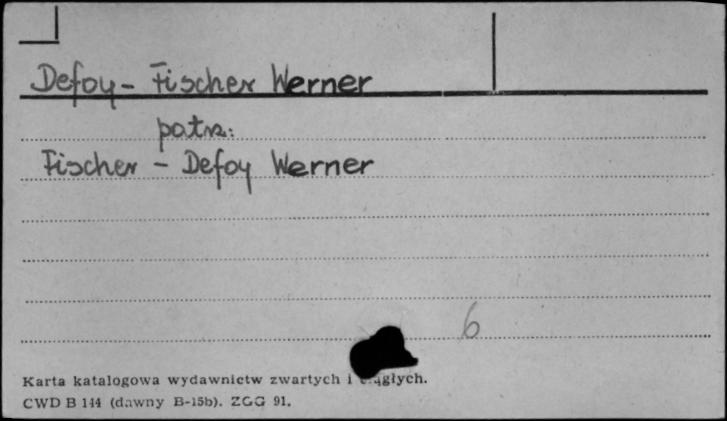 Defoy - Fischer Werner
patrz:
Fischer - Defoy Werner
6
Karta katalogowa wydawnictw zwartych i ciągłych.
CWD B 144 (dawny B-15b). ZGG 91.